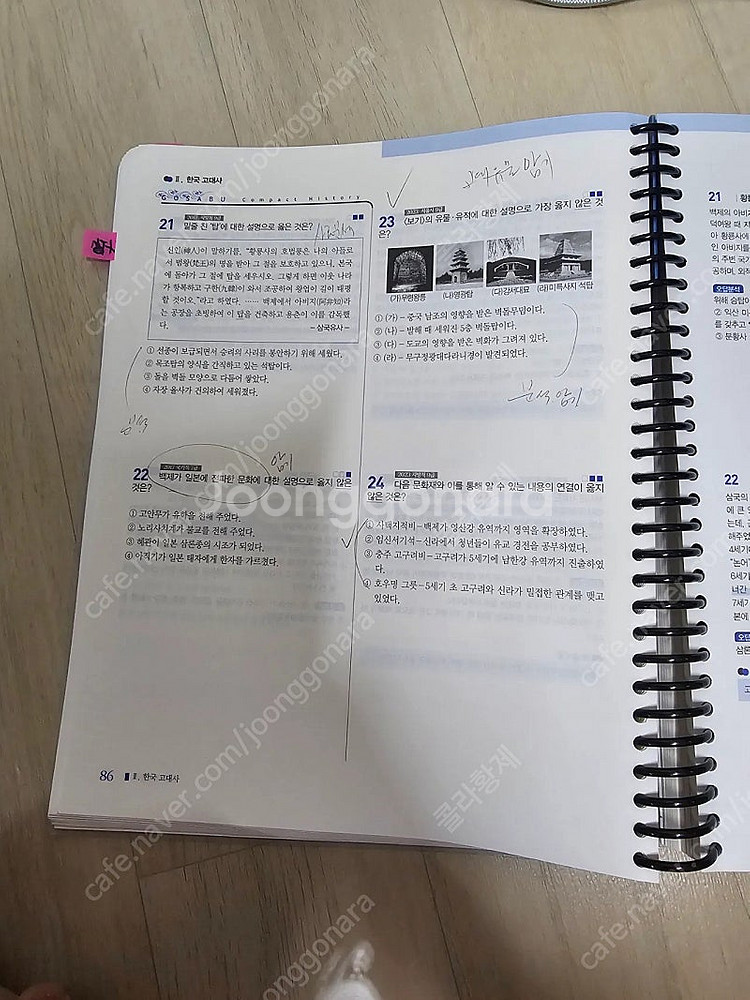 II. 한국 고대사
GOSABU Compact History
21 밑줄 친 '탑'에 대한 설명으로 옳은 것은?
신인(神人)이 말하기를, "황룡사의 호법룡은 나의 아들로
서 범왕(梵王)의 명을 받아 그 절을 보호하고 있으니, 본국
에 돌아가 그 절에 탑을 세우시오. 그렇게 하면 이웃 나라
가 항복하고 구한(九韓)이 와서 조공하여 왕업이 길이 태평
할 것이오."라고 하였다. …… 백제에서 아비지(阿非知)라
는 공장을 초빙하여 이 탑을 건축하고 용춘이 이를 감독했
다.
- 삼국유사 -
① 선종이 보급되면서 승려의 사리를 봉안하기 위해 세웠다.
② 목조탑의 양식을 간직하고 있는 석탑이다.
③ 돌을 벽돌 모양으로 다듬어 쌓았다.
④ 자장 율사가 건의하여 세워졌다.
분석
암기
22 백제가 일본에 전파한 문화에 대한 설명으로 옳지 않은
것은?
① 고안무가 유학을 전해 주었다.
② 노리사치계가 불교를 전해 주었다.
③ 혜관이 일본 삼론종의 시조가 되었다.
④ 아직기가 일본 태자에게 한자를 가르쳤다.
86 II. 한국 고대사
23 <보기>의 유물·유적에 대한 설명으로 가장 옳지 않은 것
은?
(가)무령왕릉 (나)영광탑 (다)강서대묘 (라)미륵사지 석탑
① (가) - 중국 남조의 영향을 받은 벽돌무덤이다.
② (나) - 발해 때 세워진 5층 벽돌탑이다.
③ (다) - 도교의 영향을 받은 벽화가 그려져 있다.
④ (라) - 무구정광대다라니경이 발견되었다.
분석 암기
24 다음 문화재와 이를 통해 알 수 있는 내용의 연결이 옳지
않은 것은?
① 사택지적비-백제가 영산강 유역까지 영역을 확장하였다.
② 임신서기석-신라에서 청년들이 유교 경전을 공부하였다.
③ 충주 고구려비-고구려가 5세기에 남한강 유역까지 진출하였
다.
④ 호우명 그릇-5세기 초 고구려와 신라가 밀접한 관계를 맺고
있었다.
21
22
오답분석
joonggonara
cafe.naver.com/joonggonara
콜라황제